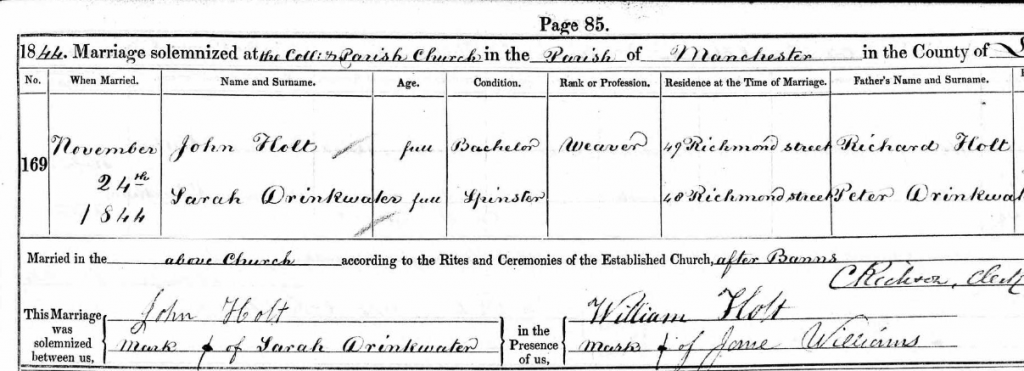 Page 85.
1844. Marriage solemnized at the Coll: & Parish Church in the Parish of Manchester in the County of
No. When Married. Name and Surname. Age. Condition. Rank or Profession. Residence at the Time of Marriage. Father's Name and Surname.
169 November John Holt full Bachelor Weaver 49 Richmond street Richard Holt
24th
1844 Sarah Drinkwater full Spinster 48 Richmond street Peter Drinkwa
Married in the above Church according to the Rites and Ceremonies of the Established Church, after Banns
This Marriage was solemnized between us, John Holt in the Presence of us, William Holt
Mark of Sarah Drinkwater Mark of Jane Williams